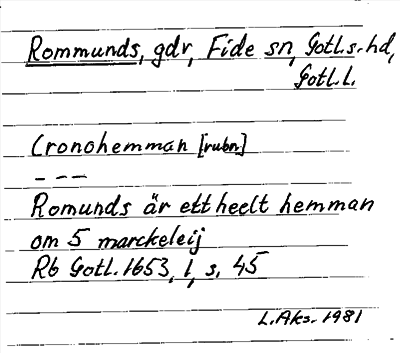 Rommunds, gdr, Fide sn, Gotl.s. hd,
Gotl. l.
Cronohemman [rubr.]
- - -
Romunds är ett heelt hemman
om 5 marckeleij
Rb Gotl. 1653, 1, s. 45
L.Aks. 1981